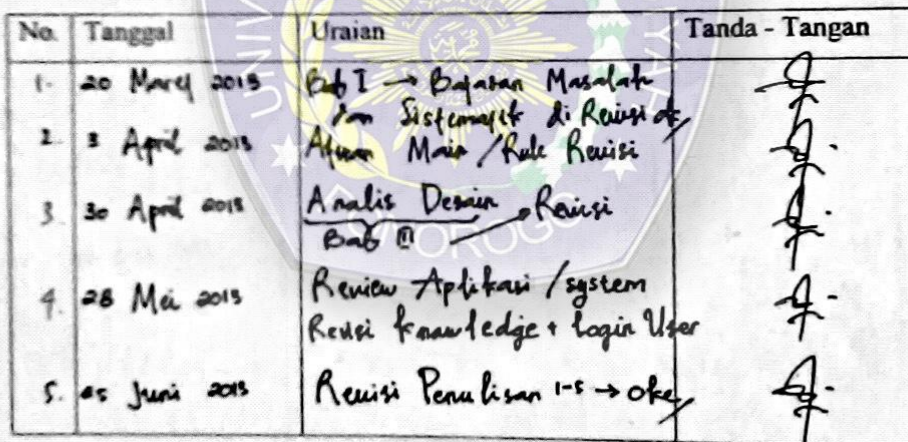 No. Tanggal Uraian Tanda - Tangan
1. 20 Maret 2015 Bab I → Batasan Masalah
dan Sistematik di Revisi
2. 3 April 2015 Aturan Main / Rule Revisi
3. 30 April 2015 Analis Desain → Revisi
Bab III
4. 28 Mei 2015 Review Aplikasi / system
Revisi knowledge + login User
5. 25 Juni 2015 Revisi Penulisan 1-5 → oke